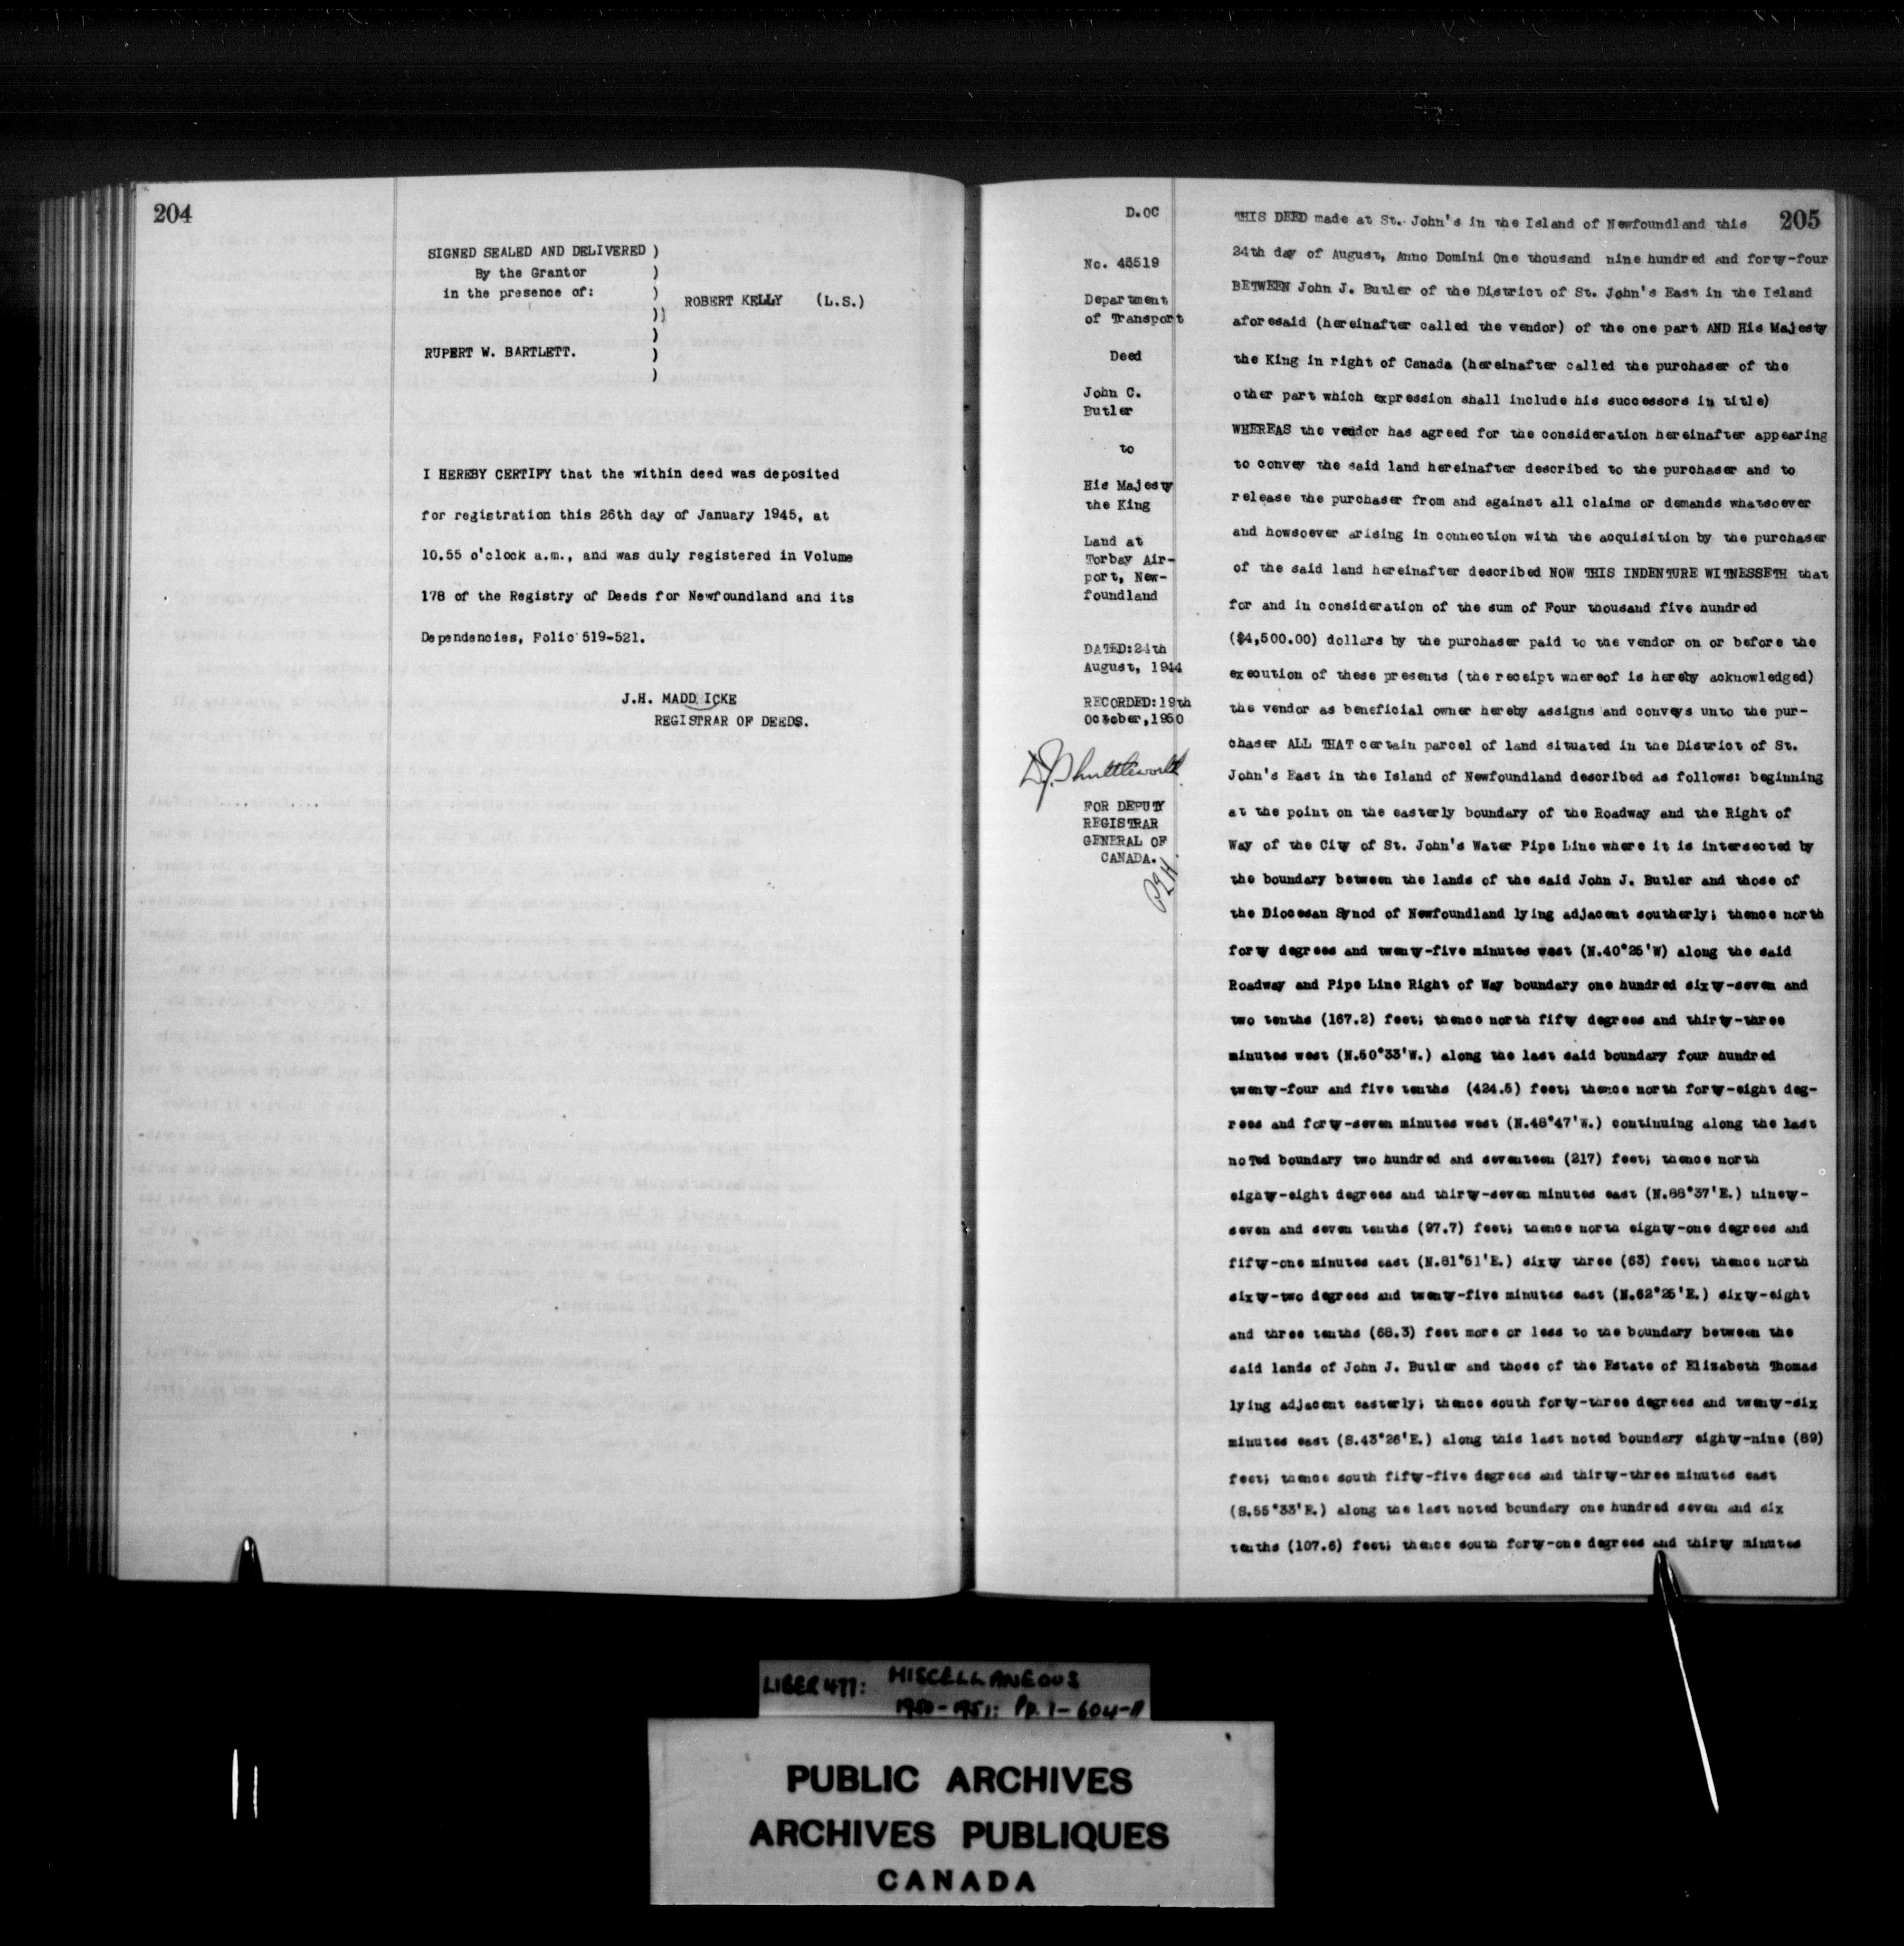 204
SIGNED SEALED AND DELIVERED )
By the Grantor )
in the presence of: )
ROBERT KELLY (L.S.)
))
)
RUPERT W. BARTLETT. )
)
I HEREBY CERTIFY that the within deed was deposited
for registration this 26th day of January 1945, at
10.55 o'clock a.m., and was duly registered in Volume
178 of the Registry of Deeds for Newfoundland and its
Dependencies, Folio 519-521.
J.H. MADD ICKE
REGISTRAR OF DEEDS.
D.OC
No. 45519
Department
of Transport
Deed
John C.
Butler
to
His Majesty
the King
Land at
Torbay Air-
port, New-
foundland
DATED:24th
August, 1944
RECORDED:19th
October,1950
D.J. Shuttleworth
FOR DEPUTY
REGISTRAR
GENERAL OF
CANADA.
205
THIS DEED made at St. John's in the Island of Newfoundland this
24th day of August, Anno Domini One thousand nine hundred and forty-four
BETWEEN John J. Butler of the District of St. John's East in the Island
aforesaid (hereinafter called the vendor) of the one part AND His Majesty
the King in right of Canada (hereinafter called the purchaser of the
other part which expression shall include his successors in title)
WHEREAS the vendor has agreed for the consideration hereinafter appearing
to convey the said land hereinafter described to the purchaser and to
release the purchaser from and against all claims or demands whatsoever
and howsoever arising in connection with the acquisition by the purchaser
of the said land hereinafter described NOW THIS INDENTURE WITNESSETH that
for and in consideration of the sum of Four thousand five hundred
($4,500.00) dollars by the purchaser paid to the vendor on or before the
execution of these presents (the receipt whereof is hereby acknowledged)
the vendor as beneficial owner hereby assigns and conveys unto the pur-
chaser ALL THAT certain parcel of land situated in the District of St.
John's East in the Island of Newfoundland described as follows: beginning
at the point on the easterly boundary of the Roadway and the Right of
Way of the City of St. John's Water Pipe Line where it is intersected by
the boundary between the lands of the said John J. Butler and those of
the Diocesan Synod of Newfoundland lying adjacent southerly; thence north
forty degrees and twenty-five minutes west (N.40°25'W) along the said
Roadway and Pipe Line Right of Way boundary one hundred sixty-seven and
two tenths (167.2) feet; thence north fifty degrees and thirty-three
minutes west (N.50°33'W.) along the last said boundary four hundred
twenty-four and five tenths (424.5) feet; thence north forty-eight deg-
rees and forty-seven minutes west (N.48°47'W.) continuing along the last
noted boundary two hundred and seventeen (217) feet; thence north
eighty-eight degrees and thirty-seven minutes east (N.88°37'E.) ninety-
seven and seven tenths (97.7) feet; thence north eighty-one degrees and
fifty-one minutes east (N.81°51'E.) sixty three (63) feet; thence north
sixty-two degrees and twenty-five minutes east (N.62°25'E.) sixty-eight
and three tenths (68.3) feet more or less to the boundary between the
said lands of John J. Butler and those of the Estate of Elizabeth Thomas
lying adjacent easterly; thence south forty-three degrees and twenty-six
minutes east (S.43°26'E.) along this last noted boundary eighty-nine (89)
feet; thence south fifty-five degrees and thirty-three minutes east
(S.55°33'E.) along the last noted boundary one hundred seven and six
tenths (107.6) feet; thence south forty-one degrees and thirty minutes
LIBER 477: MISCELLANEOUS
1950-1951: Pp. 1-604-A
PUBLIC ARCHIVES
ARCHIVES PUBLIQUES
CANADA